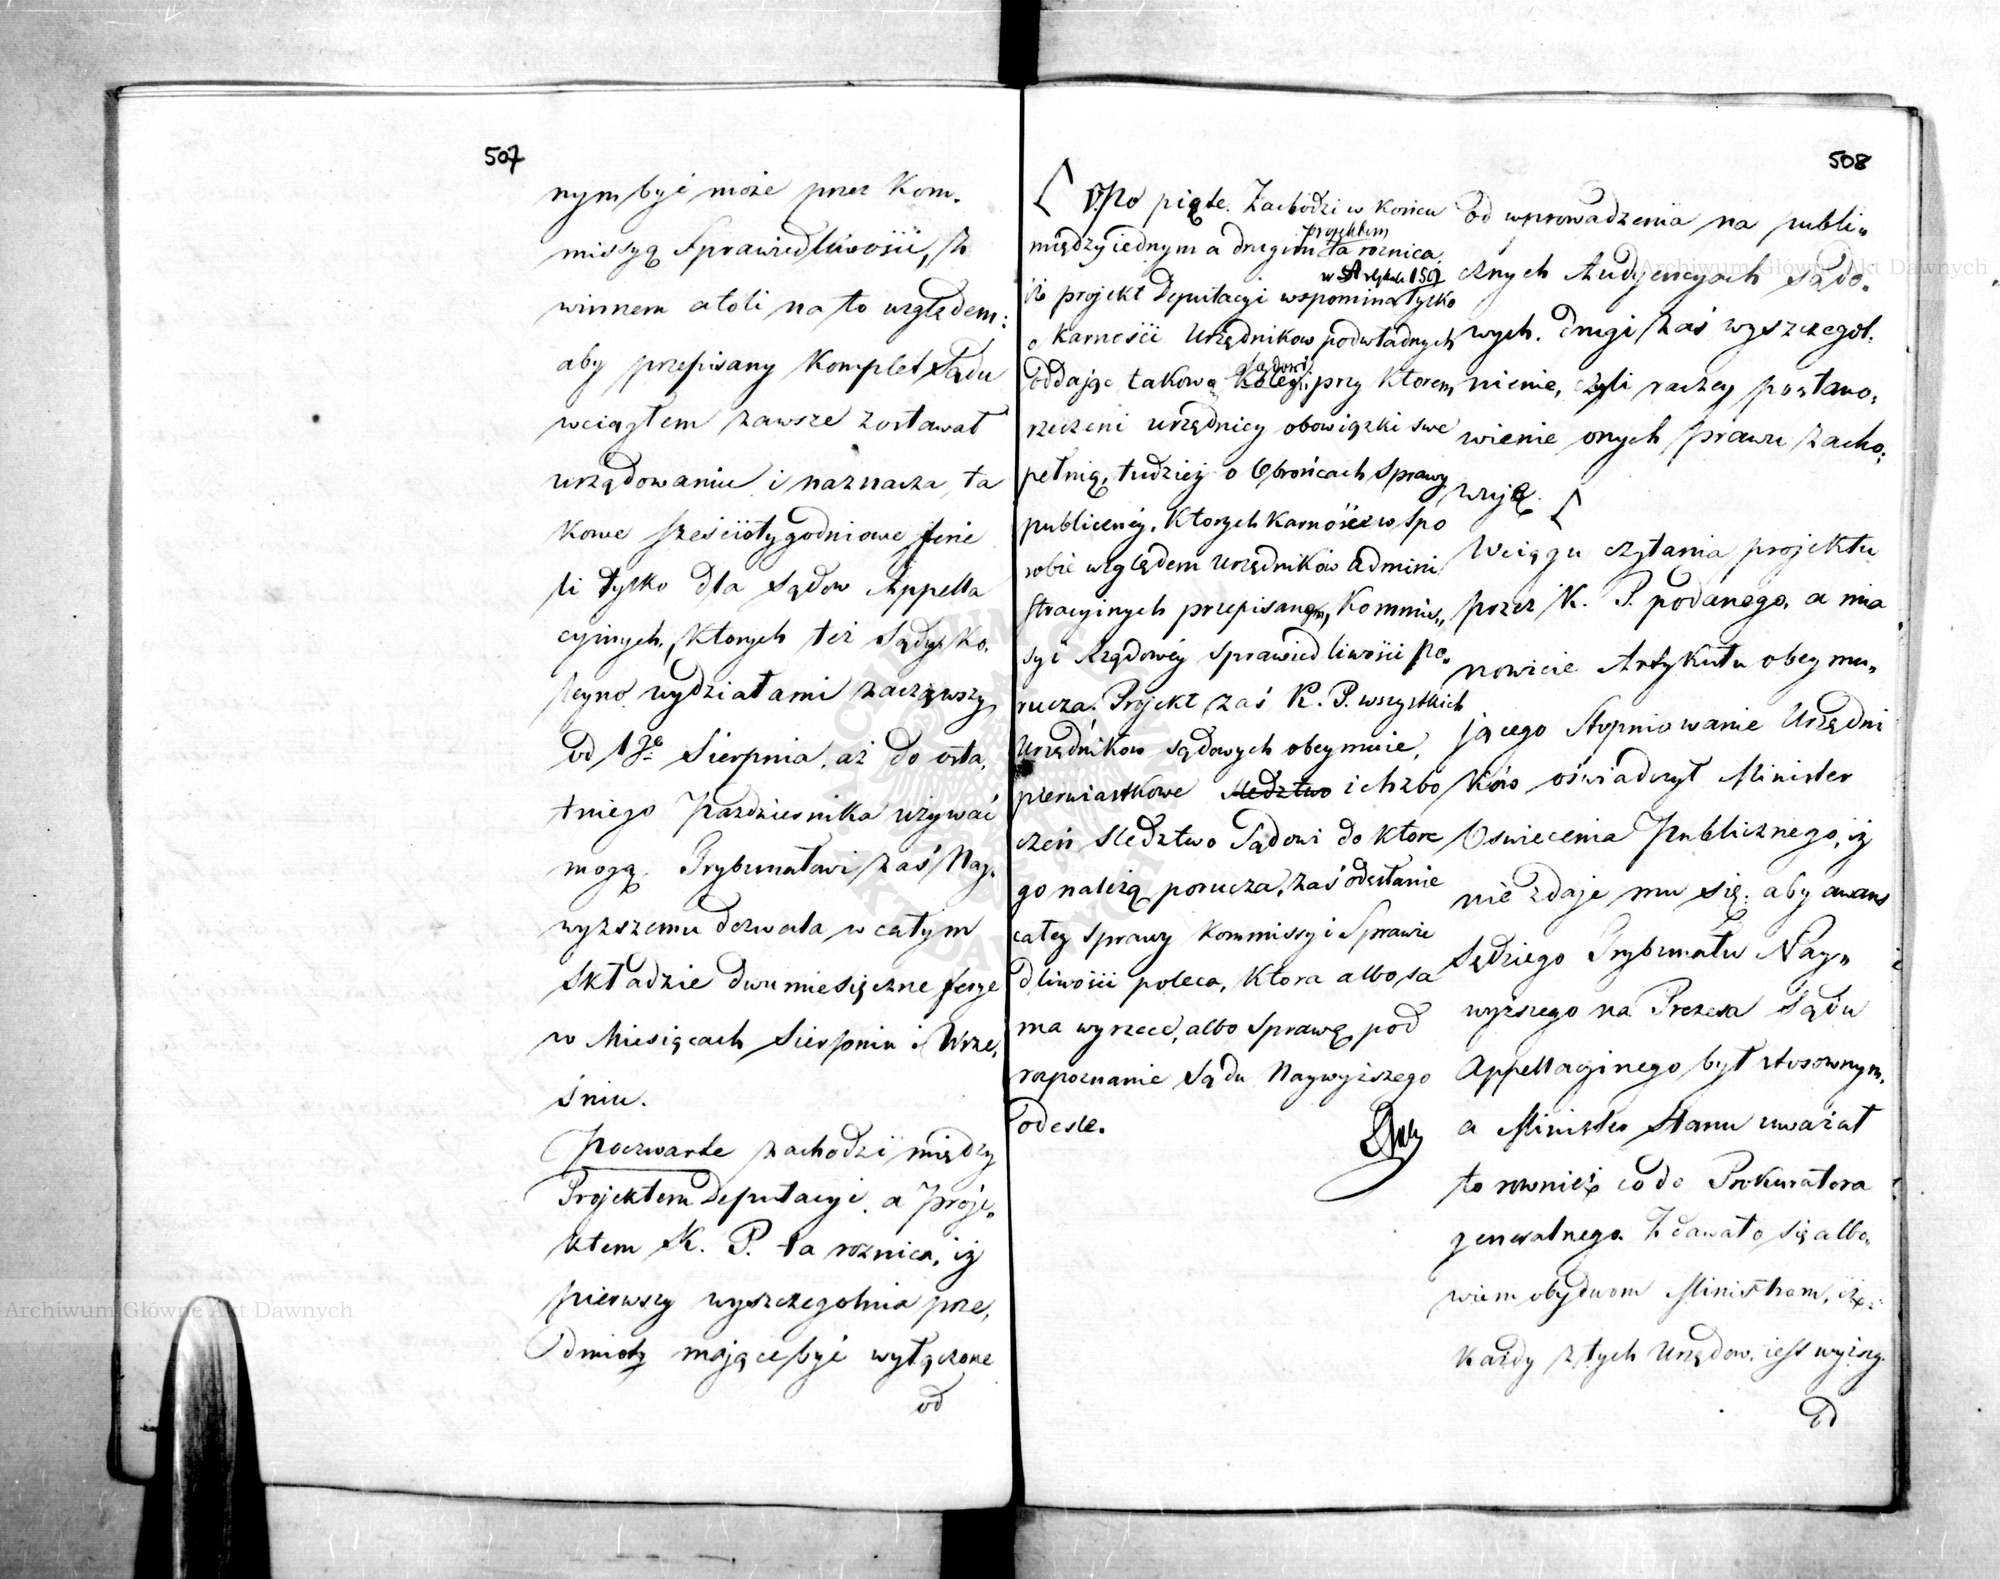 507
nym być może przez Kom,
missyą Sprawiedliwości, z
winnem atoli na to względem:
aby przepisany Komplet Sądu
wciągłem zawsze zostawał
urzędowaniu i naznacza ta
kowe sześciotygodniowe ferie
li tylko dla Sądow Appella
cyinych, których też Sądy ko,
leyno wydziałami zacząwszy
od 1go Sierpnia, aż do osta,
tniego Października używać
mogą. Trybunałowi zaś Nay,
wyższemu dozwala w całym
Składzie dwumiesięczne ferye
w Miesiącach Sierpniu i Wrze,
śniu.
Poczwarte zachodzi między
Projektem Deputacyi a proje,,
ktem K. P. ta roznica, iż
pierwszy wyszczegolnia prze,
dmioty mające być wyłączone
od
508
V. Po piąte. Zachodzi w końcu
między iednym a drugim projektem ta roznica,
iż projekt Deputacyi wspomina w Artykule 159 tylko
o karności Urzędnikow podwładnych
oddając takową Sądowi przy ktorem
rzeczeni urzędnicy obowiązki swe
pełnią, tudzież o Obrońcach sprawy
publiczney, Ktorych karność w spo
sobie względem Urzędników Admini
stracyinych przepisanym, Kommis,,
syi Rządowéy Sprawiedliwości po,,
rucza. Projekt zaś K. P. wszystkich
Urzędników sądowych obeymuie,
pierwiastkowe śledztwo ich zbo
czeń śledztwo Sądowi do które
go należą porucza, zaś odesłanie
całey sprawy Kommissyi Sprawie
dliwości poleca, Ktora albo sa
ma wyrzecze, albo sprawę pod
rozpoznanie Sądu Naywyższego
odesle.
od wprowadzenia na publi,,
cznych Audyencyach Sądo,
wych. drugi zaś wyszczegol,
nienie, czyli raczey postano,
wienie onych prawu zacho,
wuje.
Wciągu czytania projektu
przez K. P. podanego, a mia
nowicie Artykułu obeymu,,
jącego Stopniowanie Urzędni
ków oświadczył Minister
Oświecenia Publicznego, iż
nie zdaje mu się: aby awans
Sędziego Trybunału Nay,,
wyższego na Prezesa Sądu
Appellacyinego był stosownym,
a Minister Stanu uważał
to rownież co do Prokuratora
generalnego. Zdawało się albo,
wiem obydwom Ministrom, iż
każdy z tych Urzędow, iest wyższy
od
Archiwum Główne Akt Dawnych
Archiwum Główne Akt Dawnych